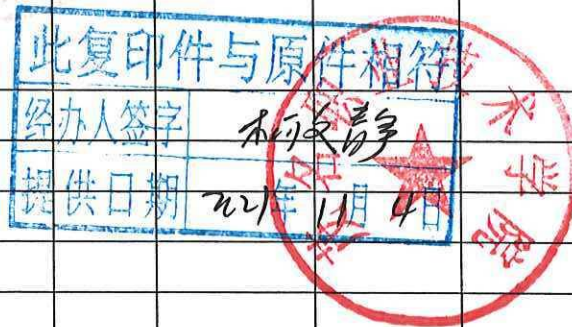 此复印件与原件相符
经办人签字 柯文静
提供日期 2021年 11月 4日
术学院